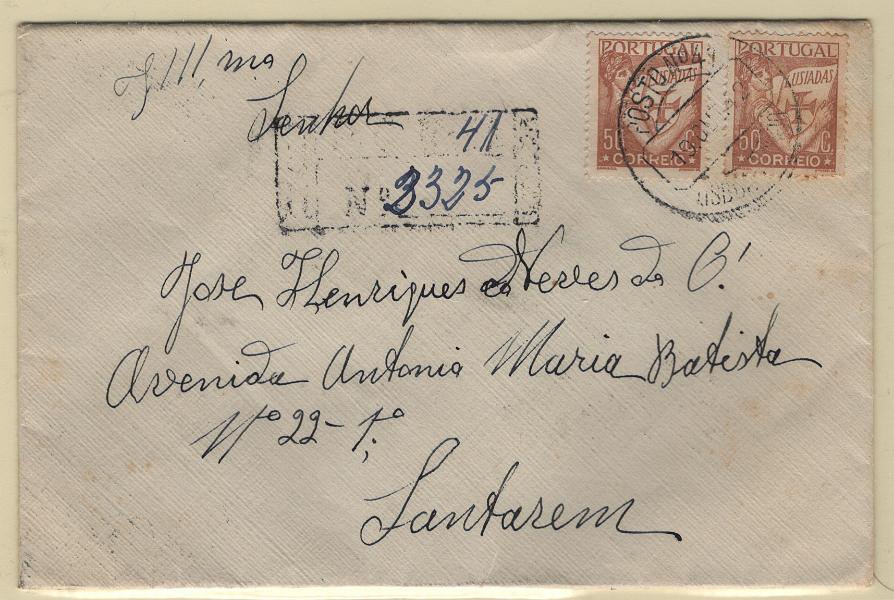 Senhor
PORTUGAL
LUSIADAS
50 C.
CORREIO
PORTUGAL
LUSIADAS
50 C.
CORREIO
POSTO Nº 41
41
Nº 3325
Jose Henriques Neves da C.ª
Avenida Antonia Maria Batista
Nº 22 - 1.º
Santarem